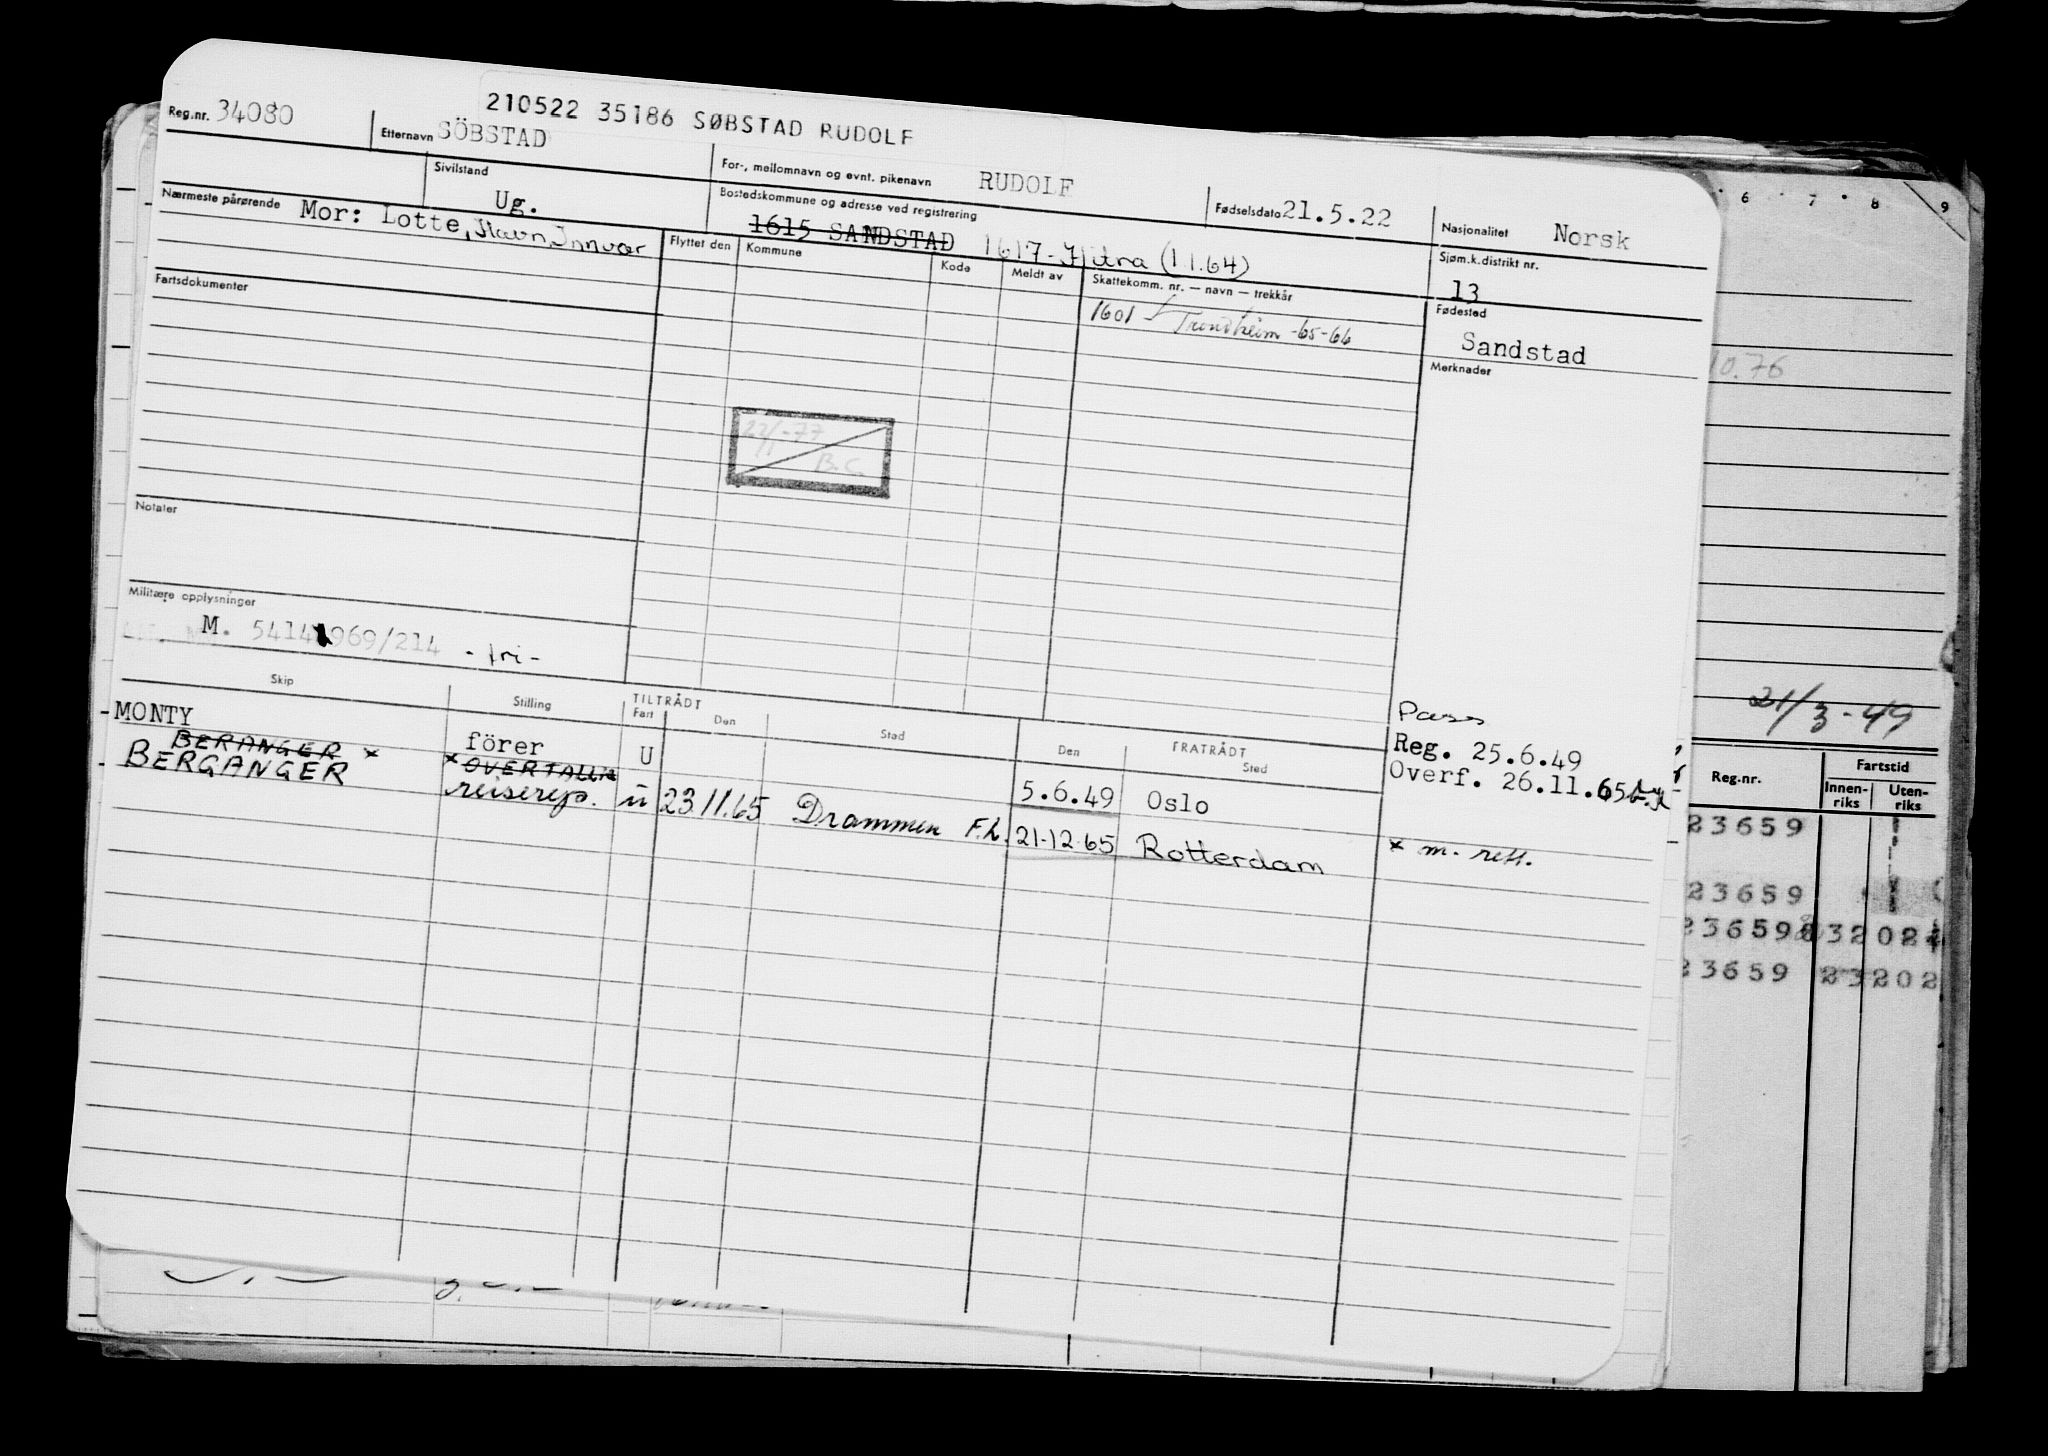 210522 35186 SØBSTAD RUDOLF
Reg.nr. 34080
Etternavn SÖBSTAD
For-, mellomnavn og evnt. pikenavn RUDOLF
Fødselsdato 21.5.22
Nasjonalitet Norsk
Sivilstand Ug.
Bostedskommune og adresse ved registrering
1615 SANDSTAD 1617-Hitra (1.1.64)
Sjøm.k.distrikt nr.
13
Nærmeste pårørende Mor: Lotte, Havn, Innvær
Flyttet den Kommune Kode Meldt av Skattekomm. nr. — navn — trekkår
1601 Trondheim -65-66
Fødested
Sandstad
Fartsdokumenter
Merknader
22/1-77
B.C.
Notater
Militære opplysninger
M. 5414 969/214 - fri -
Skip Stilling TILTRÅDT FRATRÅDT
Fart Den Sted Den Sted
Pass
MONTY förer U 5.6.49 Oslo Reg. 25.6.49
BERANGER x x OVERTALLIG Overf. 26.11.65
BERGANGER reiserep. u 23.11.65 Drammen F.h. 21-12-65 Rotterdam x m. rett.
6 7 8 9
10.76
21/3-49
Reg.nr. Fartstid
Innen-riks Uten-riks
23659
23659
23659 32 02
23659 23 202